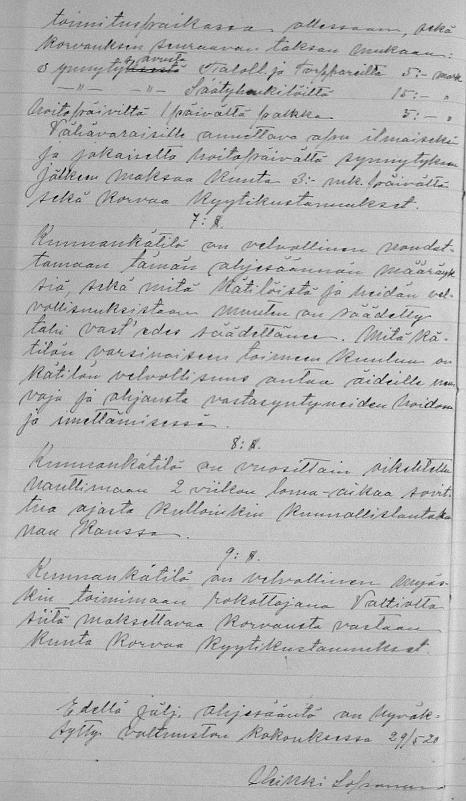 toimituspaikassa ollessaan, sekä
korvauksen seuraavan taksan mukaan:
S ynnytysavusta Taloll. ja Torppareilta 5:- mark
-"- -"- Säätyhenkilöiltä 15:- "
Hoitopäiviltä 1 päivältä palkka 5:- "
Vähävaraisille annettava apu ilmaiseksi
ja jokaiselta hoitopäivältä synnytyksen
jälkeen maksaa kunta 3:- mk. päivältä
sekä korvaa kyytikustannukset.
7: §.
Kunnankätilö on velvollinen noudat-
tamaan tämän ohjesäännön määräyk
siä, sekä mitä kätilöistä ja heidän vel-
vollisuuksistaan muuten on säädetty
tahi vast'edes säädettänee. Mitä kä-
tilön varsinaiseen toimeen kuuluu on
kätilön velvollisuus antaa äideille neu
voja ja ohjausta vastasyntyneiden hoidossa
ja imettämisessä.
8: §.
Kunnankätilö on vuosittain oikeutettu
nauttimaan 2 viikon loma-aikaa sovit-
tua ajasta kulloinkin kunnallislautakun
nan kanssa.
9: §.
Kunnankätilö on velvollinen myös-
kin toimimaan rokottajana Valtiolta
siitä maksettavaa korvausta vastaan
kunta korvaa kyytikustannukset.
Edellä jälj. ohjesääntö on hyväk-
sytty valtuuston kokouksessa 29/5 20
Heikki